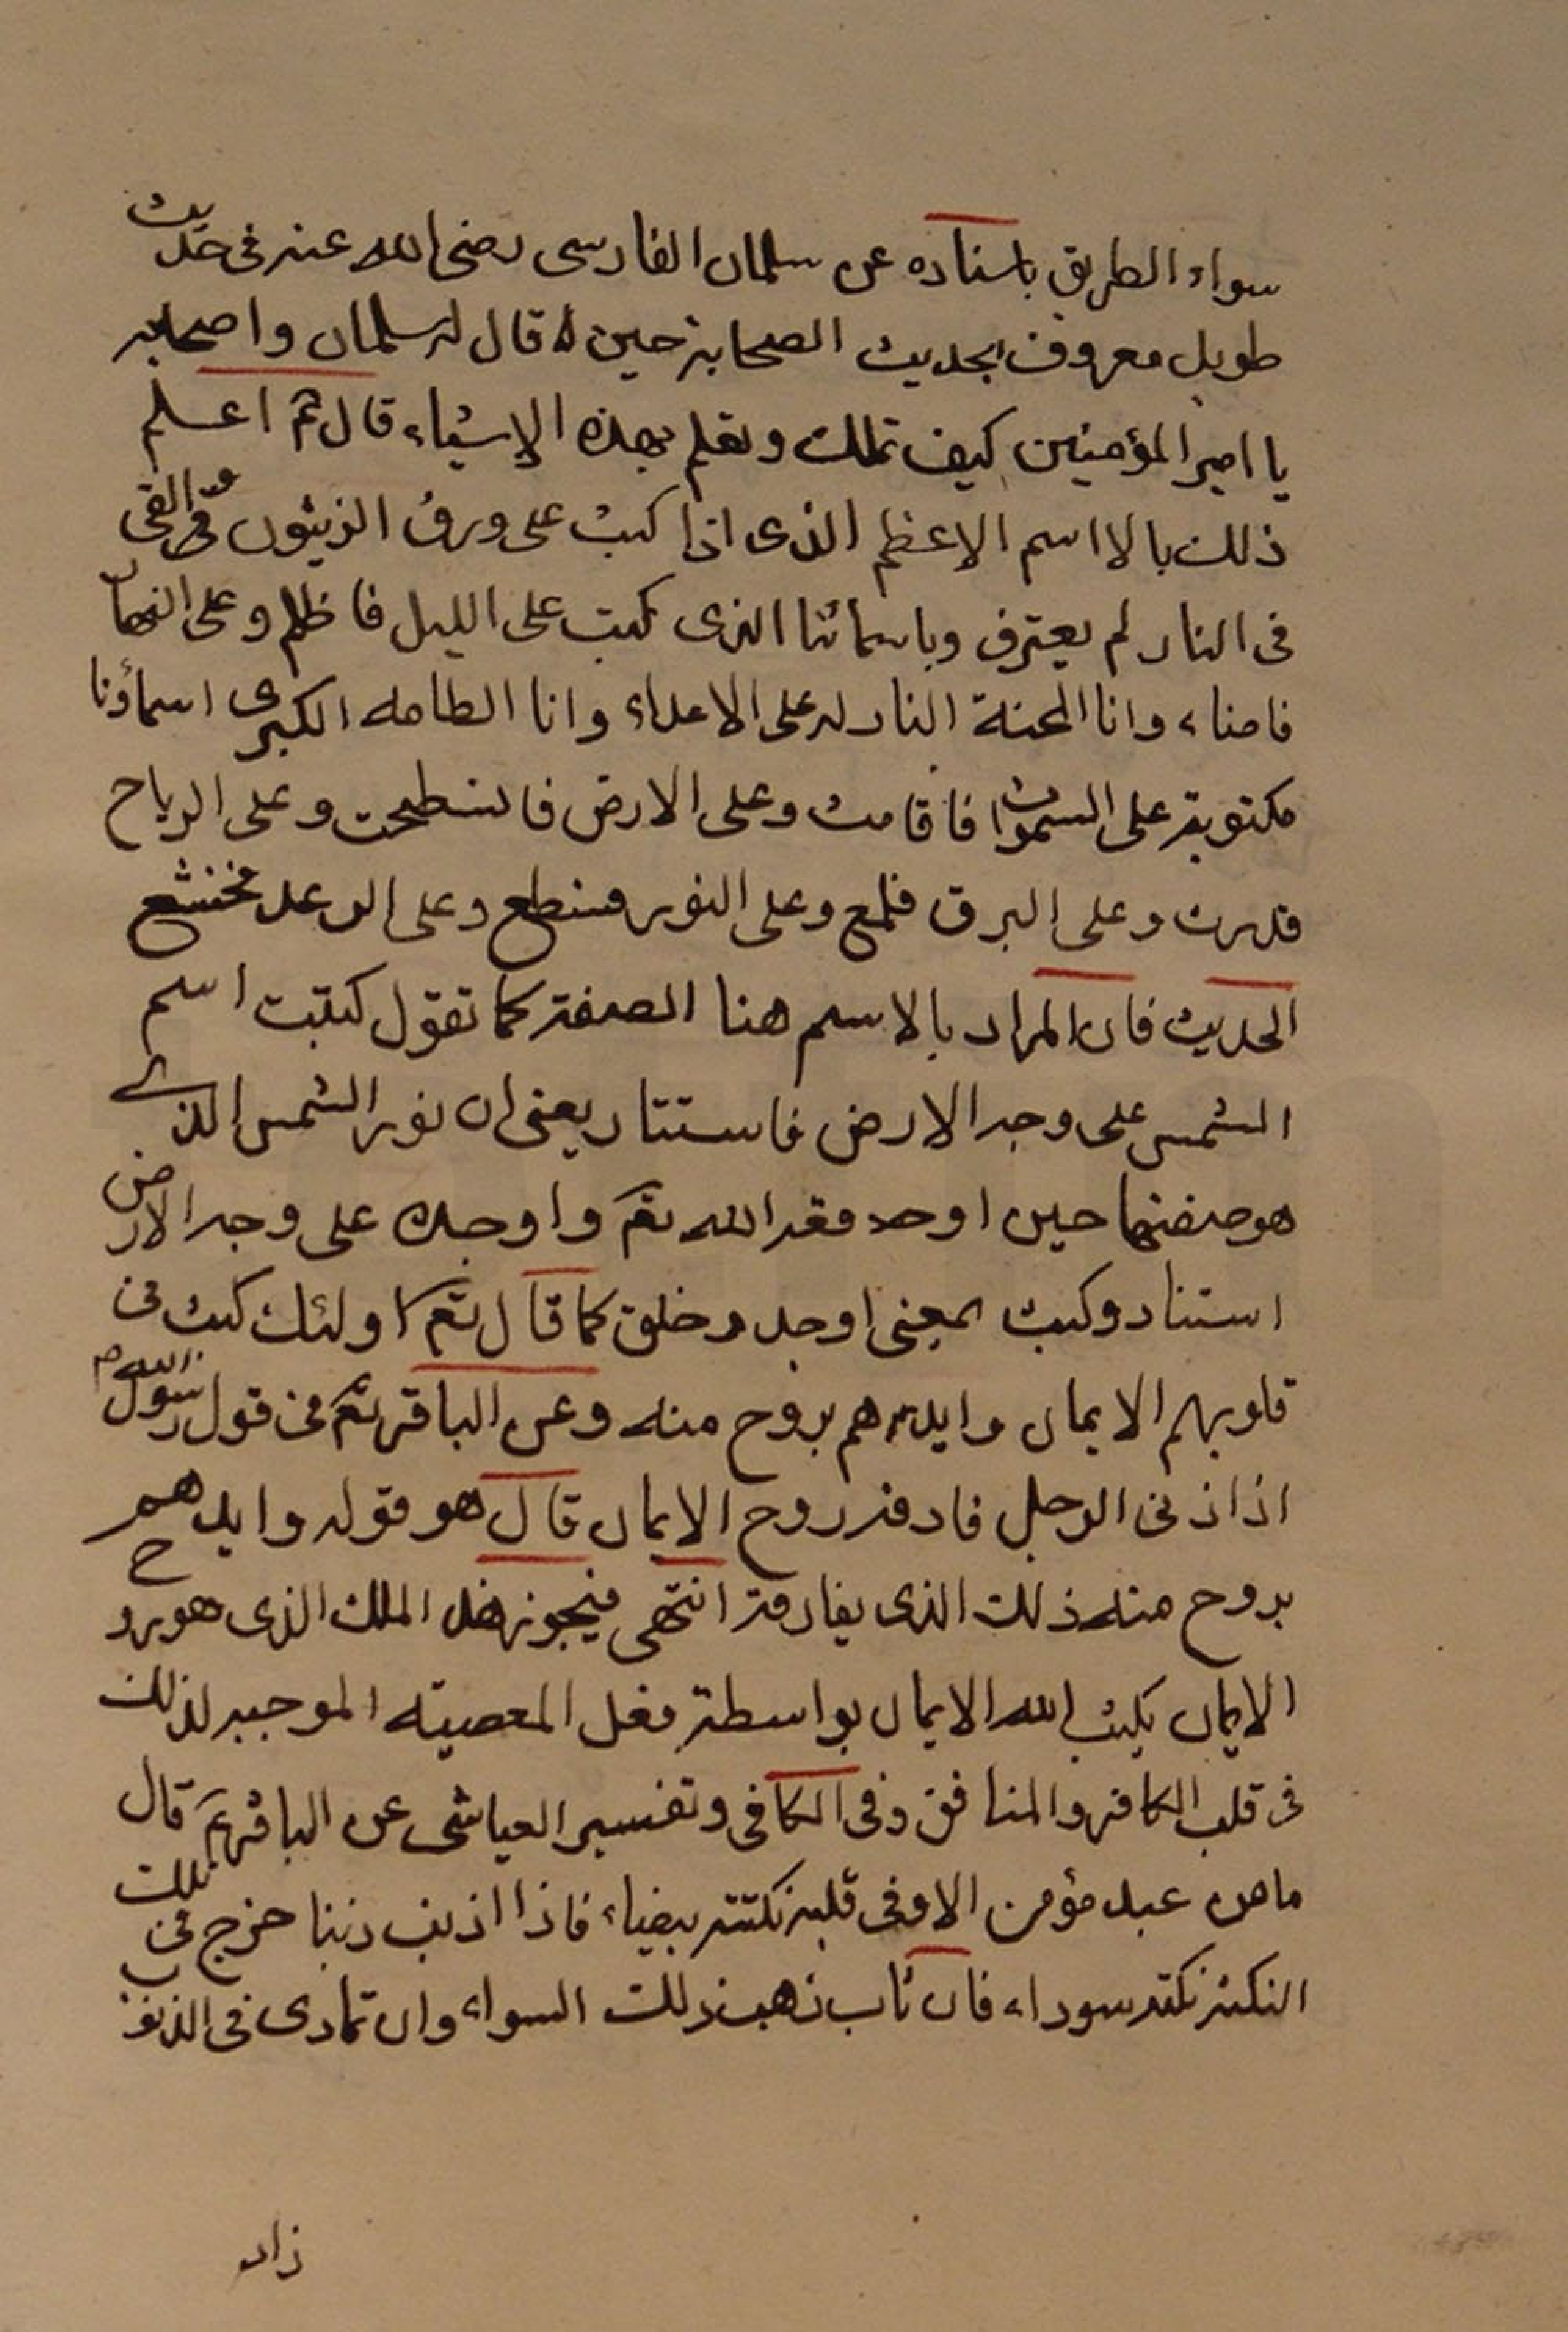 سواء الطريق باسناده عن سلمان الفارسى رضى الله عنه فى حديث
طويل معروف بحديث الصحابة حين قال له سلمان واصحابه
يا امير المؤمنين كيف تملك وتعلم بهذه الاشياء قال ع اعلم
ذلك بالااسم الاعظم الذى اذا كتب على ورق الزيتون و القى
فى النار لم يحترق وباسمائنا الذى كتبت على الليل فاظلم وعلى النهار
فاضاء وانا المحنة النازله على الاعداء وانا الطامه الكبرى اسماؤنا
مكتوبة على السموات فاقامت وعلى الارض فانسطحت وعلى الرياح
فذرت وعلى البرق فلمع وعلى النور فسطع وعلى الرعد فخشع
الحديث فان المراد بالاسم هنا الصفة كما تقول كتبت اسم
الشمس على وجه الارض فاستنار يعنى ان نور الشمس الذى
هو صفتها حين اوجده الله تع واوجده على وجه الارض
استنار وكتب بمعنى اوجد وخلق كما قال تع اولئك كتب فى
قلوبهم الايمان وايدهم بروح منه وعن الباقر ع فى قول رسول الله ص
اذا زنى الرجل فارقه روح الايمان قال هو قوله وايدهم
بروح منه ذلك الذى يفارقه انتهى فيجوز هذا الملك الذى هو روح
الايمان يكتب الله الايمان بواسطة فعل المعصيته الموجبه لذلك
فى قلب الكافر والمنافق وفى الكافى وتفسير العياشى عن الباقر ع قال
ما من عبد مؤمن الا وفى قلبه نكتته بيضاء فاذا اذنب ذنبا خرج فى تلك
النكتة نكته سوداء فان تاب ذهب ذلك السواء وان تمادى فى الذنوب
زاد